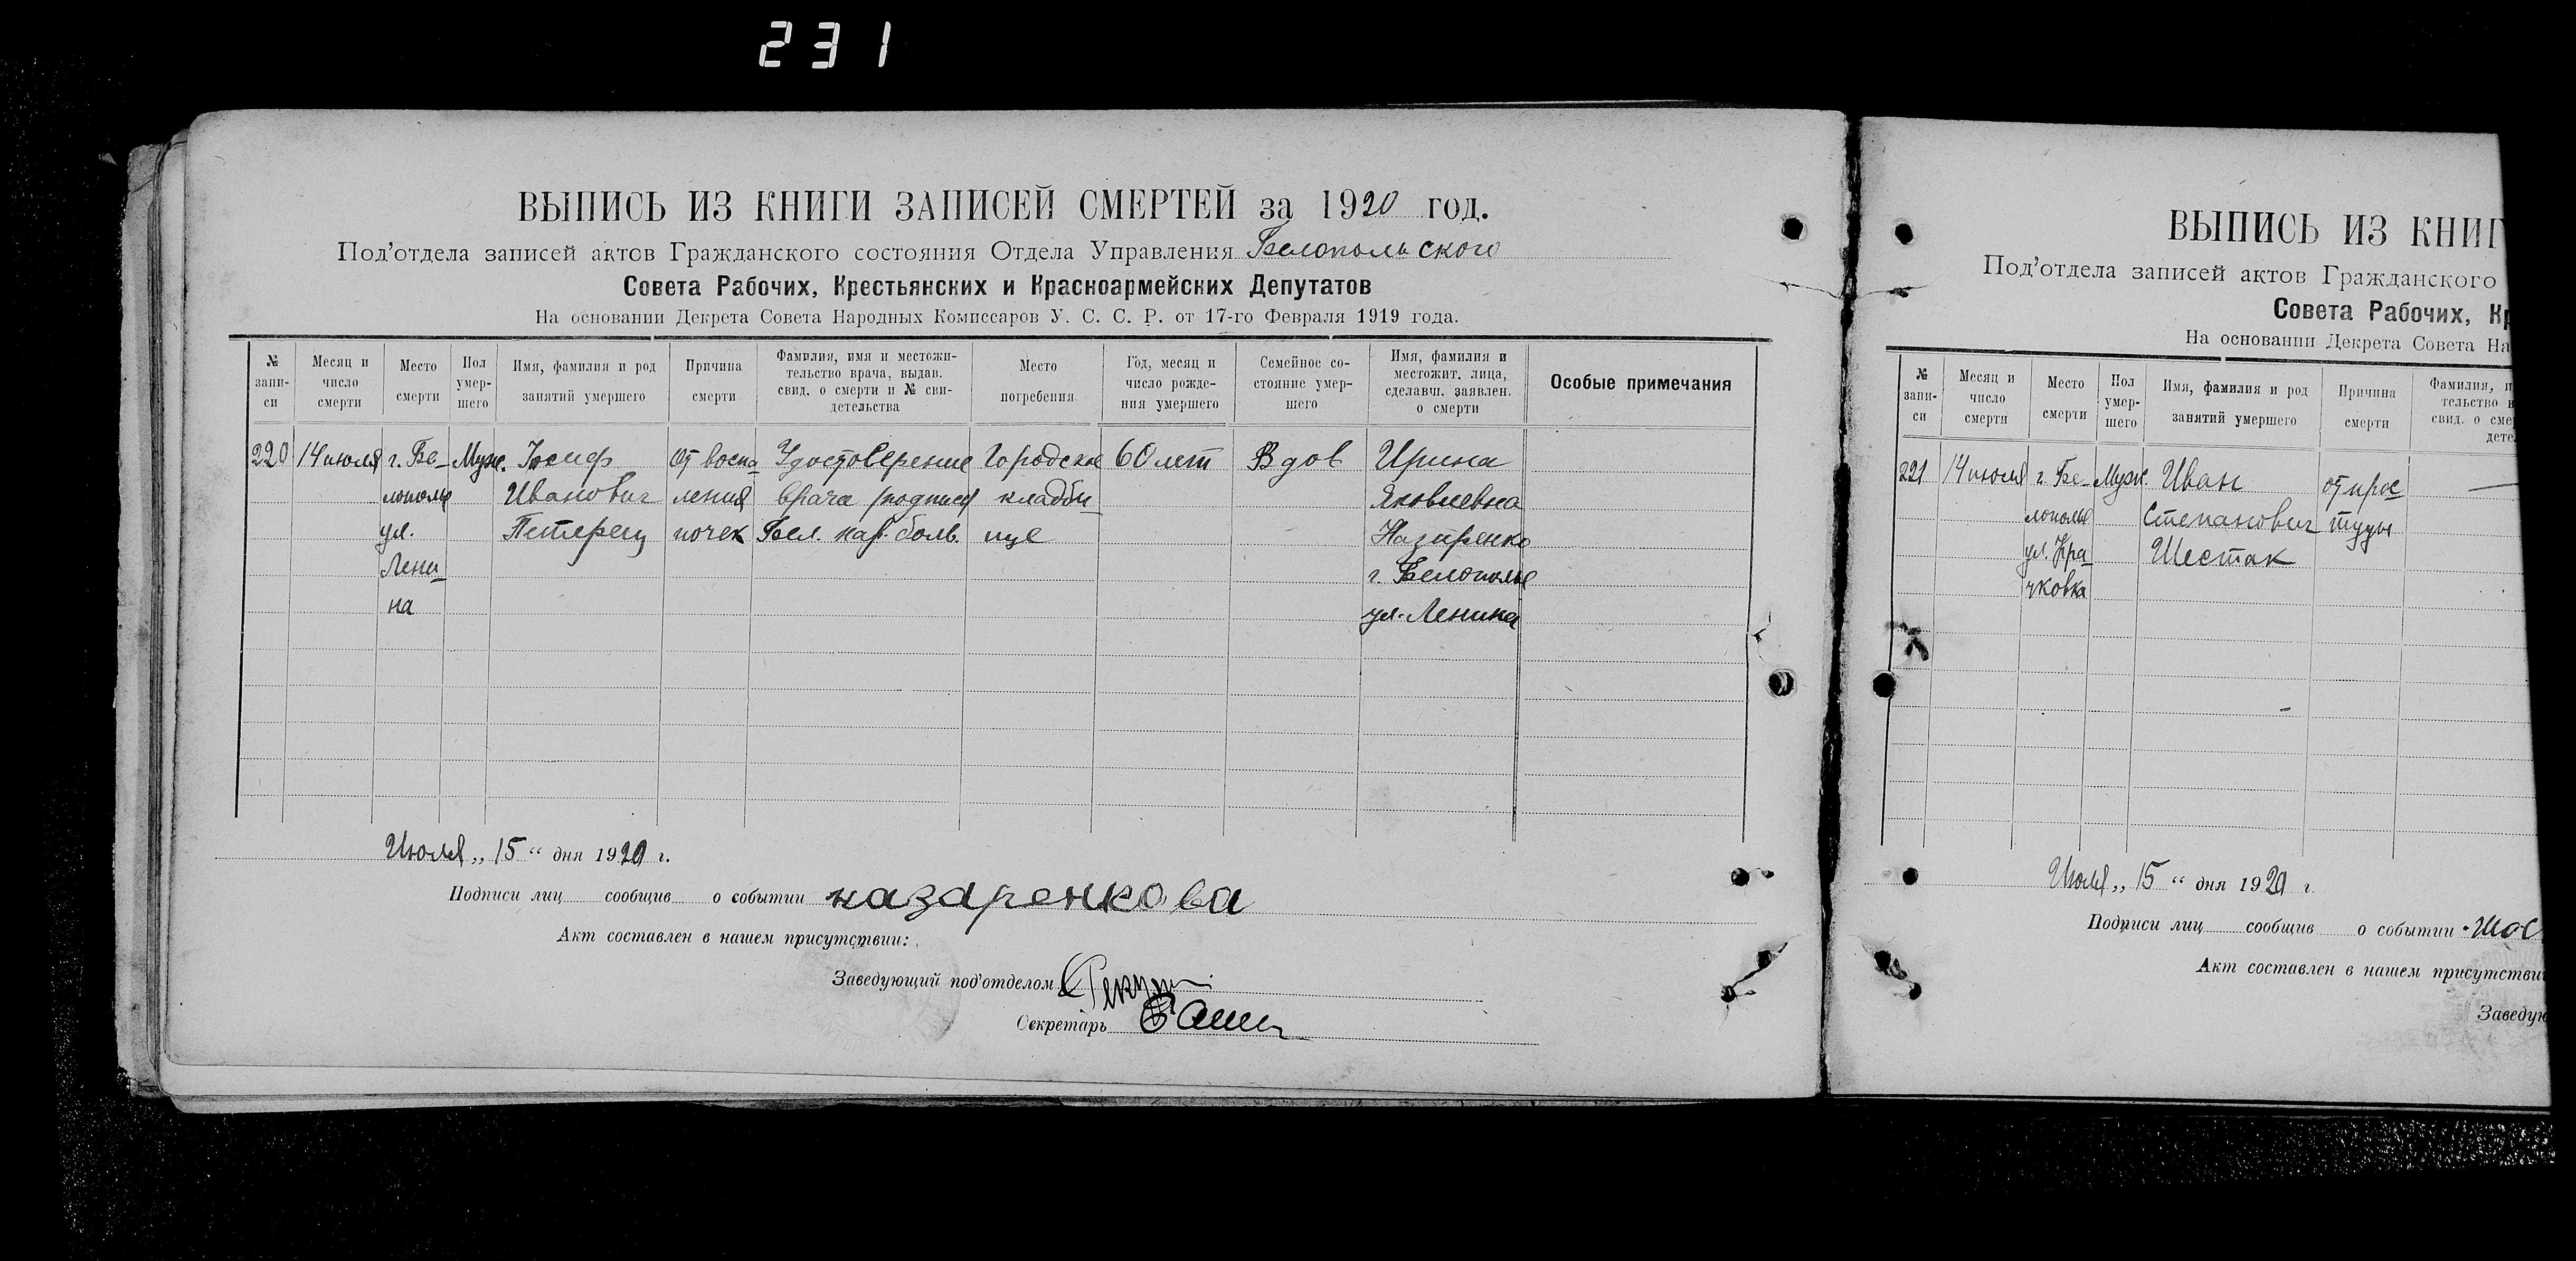 231
ВЫПИСЬ ИЗ КНИГИ ЗАПИСЕЙ СМЕРТЕЙ за 1920 год.
Под'отдела записей актов Гражданского состояния Отдела Управления Белопольского
Совета Рабочих, Крестьянских и Красноармейских Депутатов
На основании Декрета Совета Народных Комиссаров У. С. С. Р. от 17-го Февраля 1919 года.
№ запи-си
Месяц и число смерти
Место смерти
Пол умер-шего
Имя, фамилия и род занятий умершего
Причина смерти
Фамилия, имя и местожи-тельство врача, выдав. свид. о смерти и № сви-детельства
Место погребения
Год, месяц и число рожде-ния умершего
Семейное со-стояние умер-шего
Имя, фамилия и местожит. лица, сделавш. заявлен. о смерти
Особые примечания
220 14 июля г. Бе- Муж. Иосиф От воспа Удостоверение Городское 60 лет Вдов Ирина
лополье Иванович ления врача (подпись кладби Яковлевна
ул. Петерец почек Бел. нар. больн. ще Назаренко
Лени г. Белополье
на ул. Ленина
Июля „15“ дня 1920 г.
Подписи лиц сообщив о событии назаренкова
Акт составлен в нашем присутствии:
Заведующий под'отделом
Секретарь
ВЫПИСЬ ИЗ КНИГ
Под'отдела записей актов Гражданского
Совета Рабочих, Кр
На основании Декрета Совета На
№ запи-си
Месяц и число смерти
Место смерти
Пол умер-шего
Имя, фамилия и род занятий умершего
Причина смерти
Фамилия, и
тельство в
свид. о сме
дете
221 14 июля г. Бе- Муж. Иван от прос —
лополье Степанович туды
ул. Кра Шестак
чковка
Июля „15“ дня 1920 г.
Подписи лиц сообщив о событии Шос
Акт составлен в нашем присутстви
Заведую